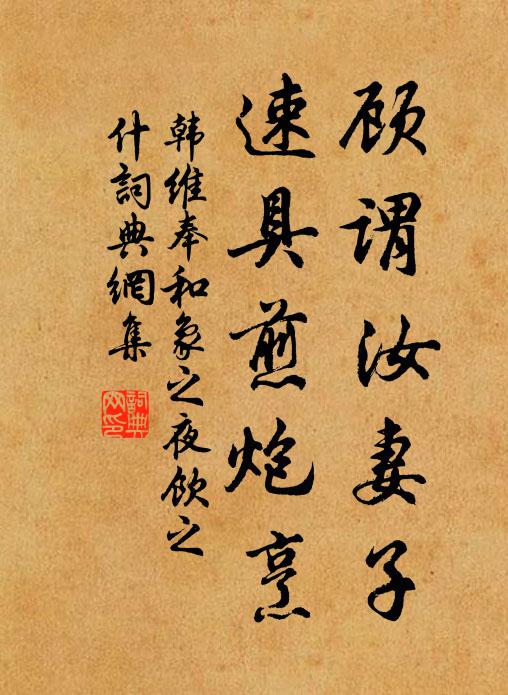 顾谓汝妻子
速具煎炮烹
韩维奉和象之夜饮之
什詞典網集
詞典
网印